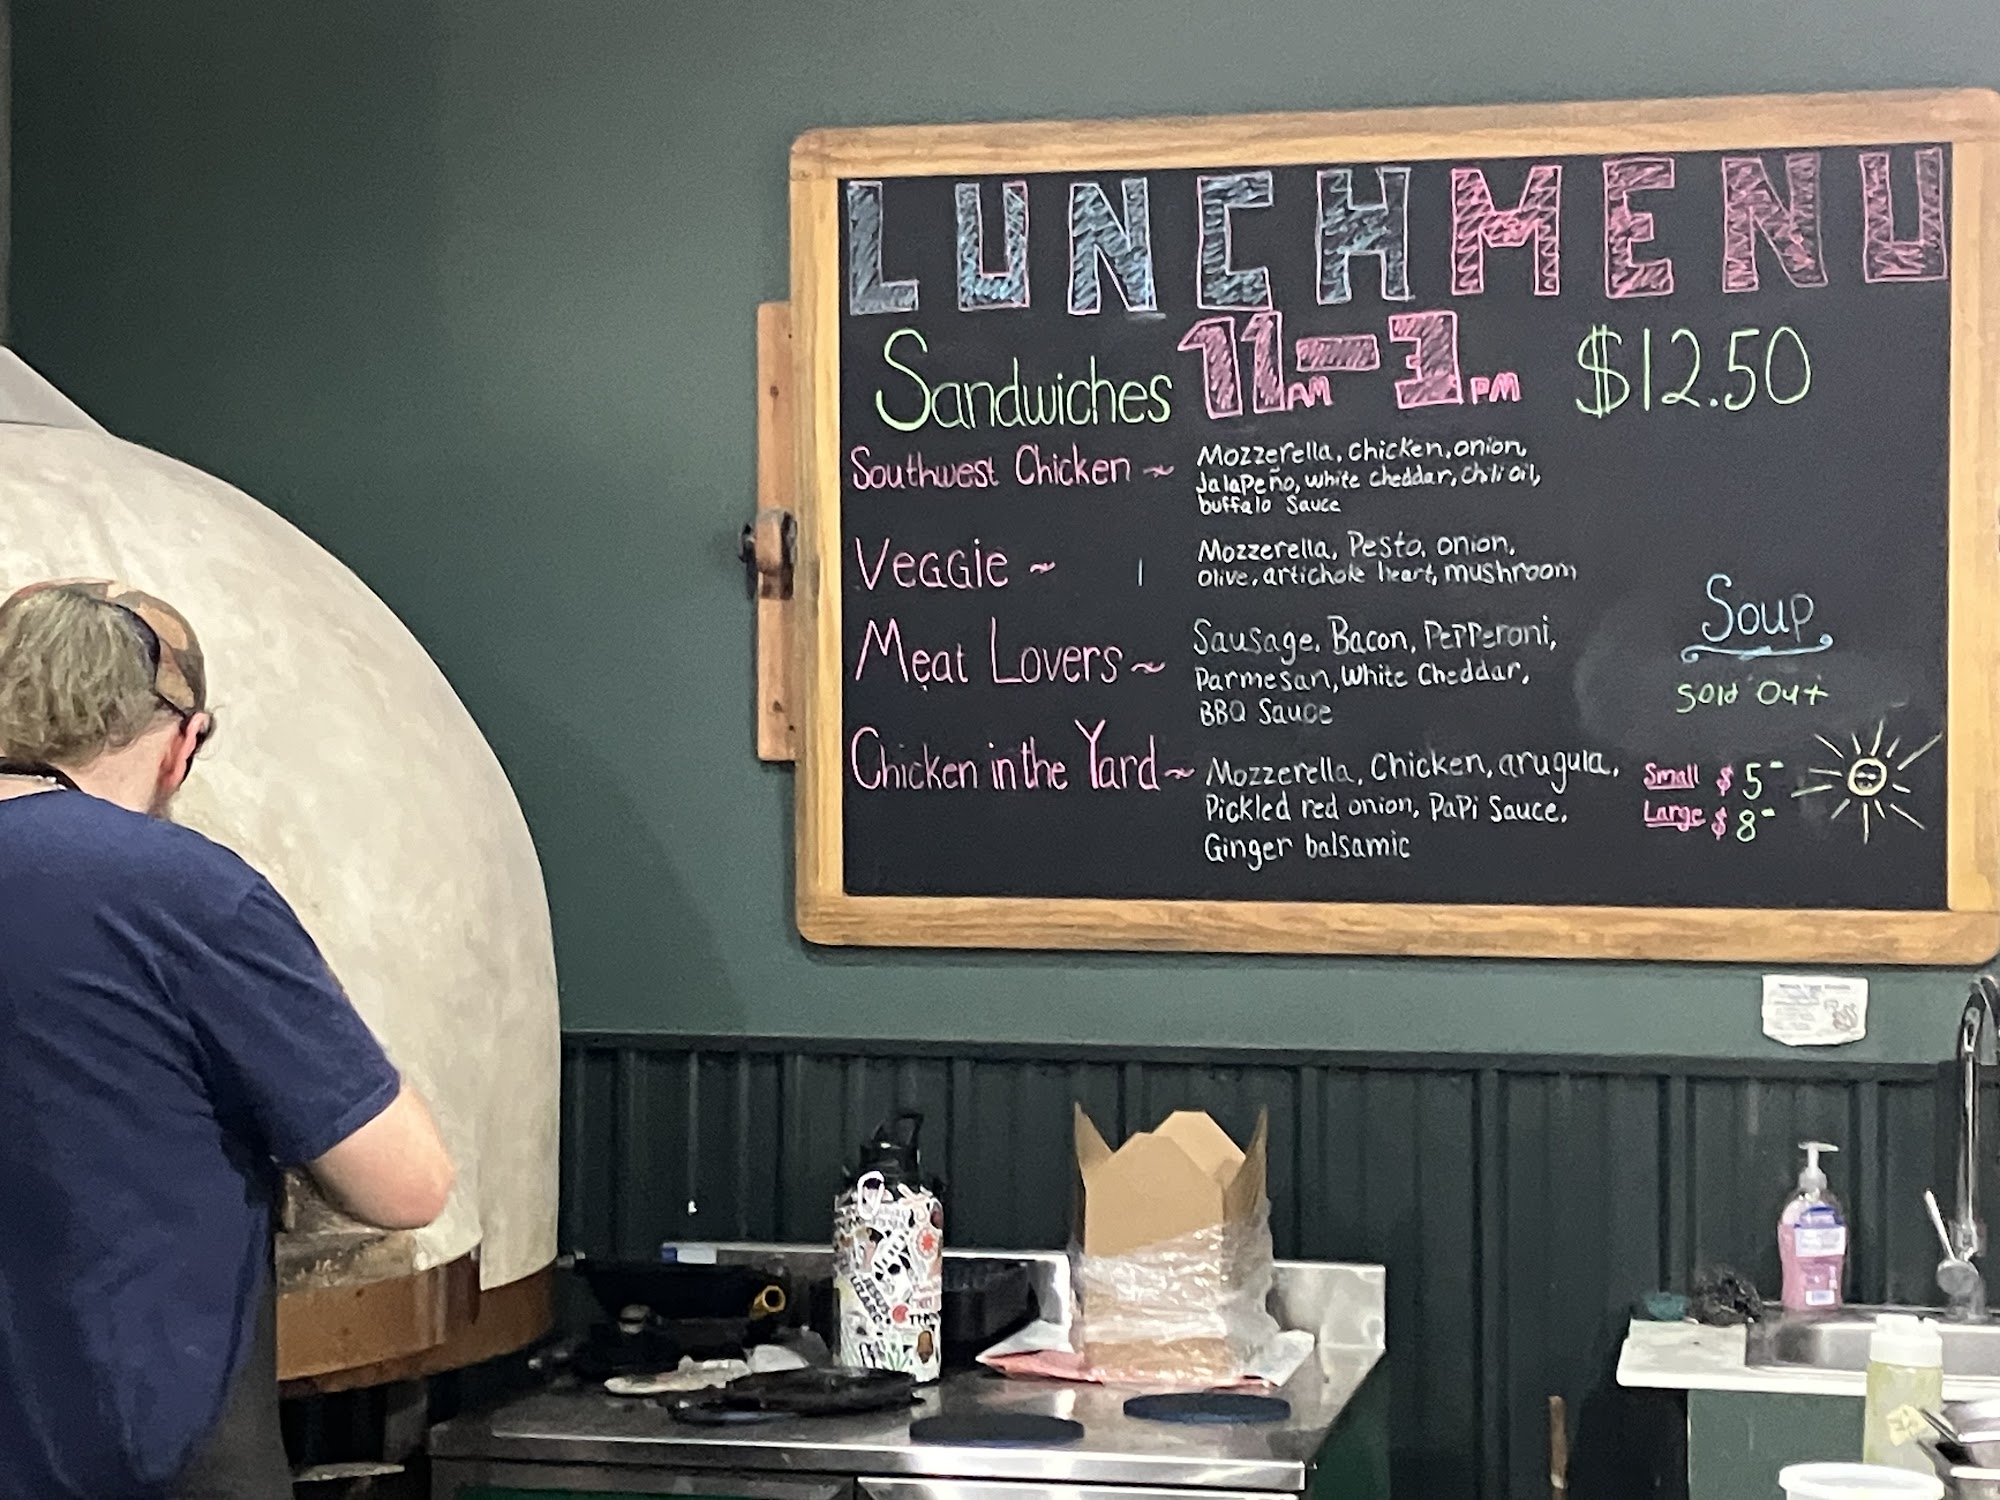 LUNCH MENU
Sandwiches 11AM-3PM $12.50
Southwest Chicken ~ Mozzerella, chicken, onion,
Jalapeño, white cheddar, chili oil,
buffalo Sauce
Veggie ~ Mozzerella, Pesto, onion,
olive, artichoke heart, mushroom
Meat Lovers ~ Sausage, Bacon, Pepperoni,
Parmesan, White Cheddar,
BBQ Sauce
Chicken in the Yard ~ Mozzerella, Chicken, arugula,
Pickled red onion, PaPi Sauce,
Ginger balsamic
Soup
Sold Out
Small $5-
Large $8-